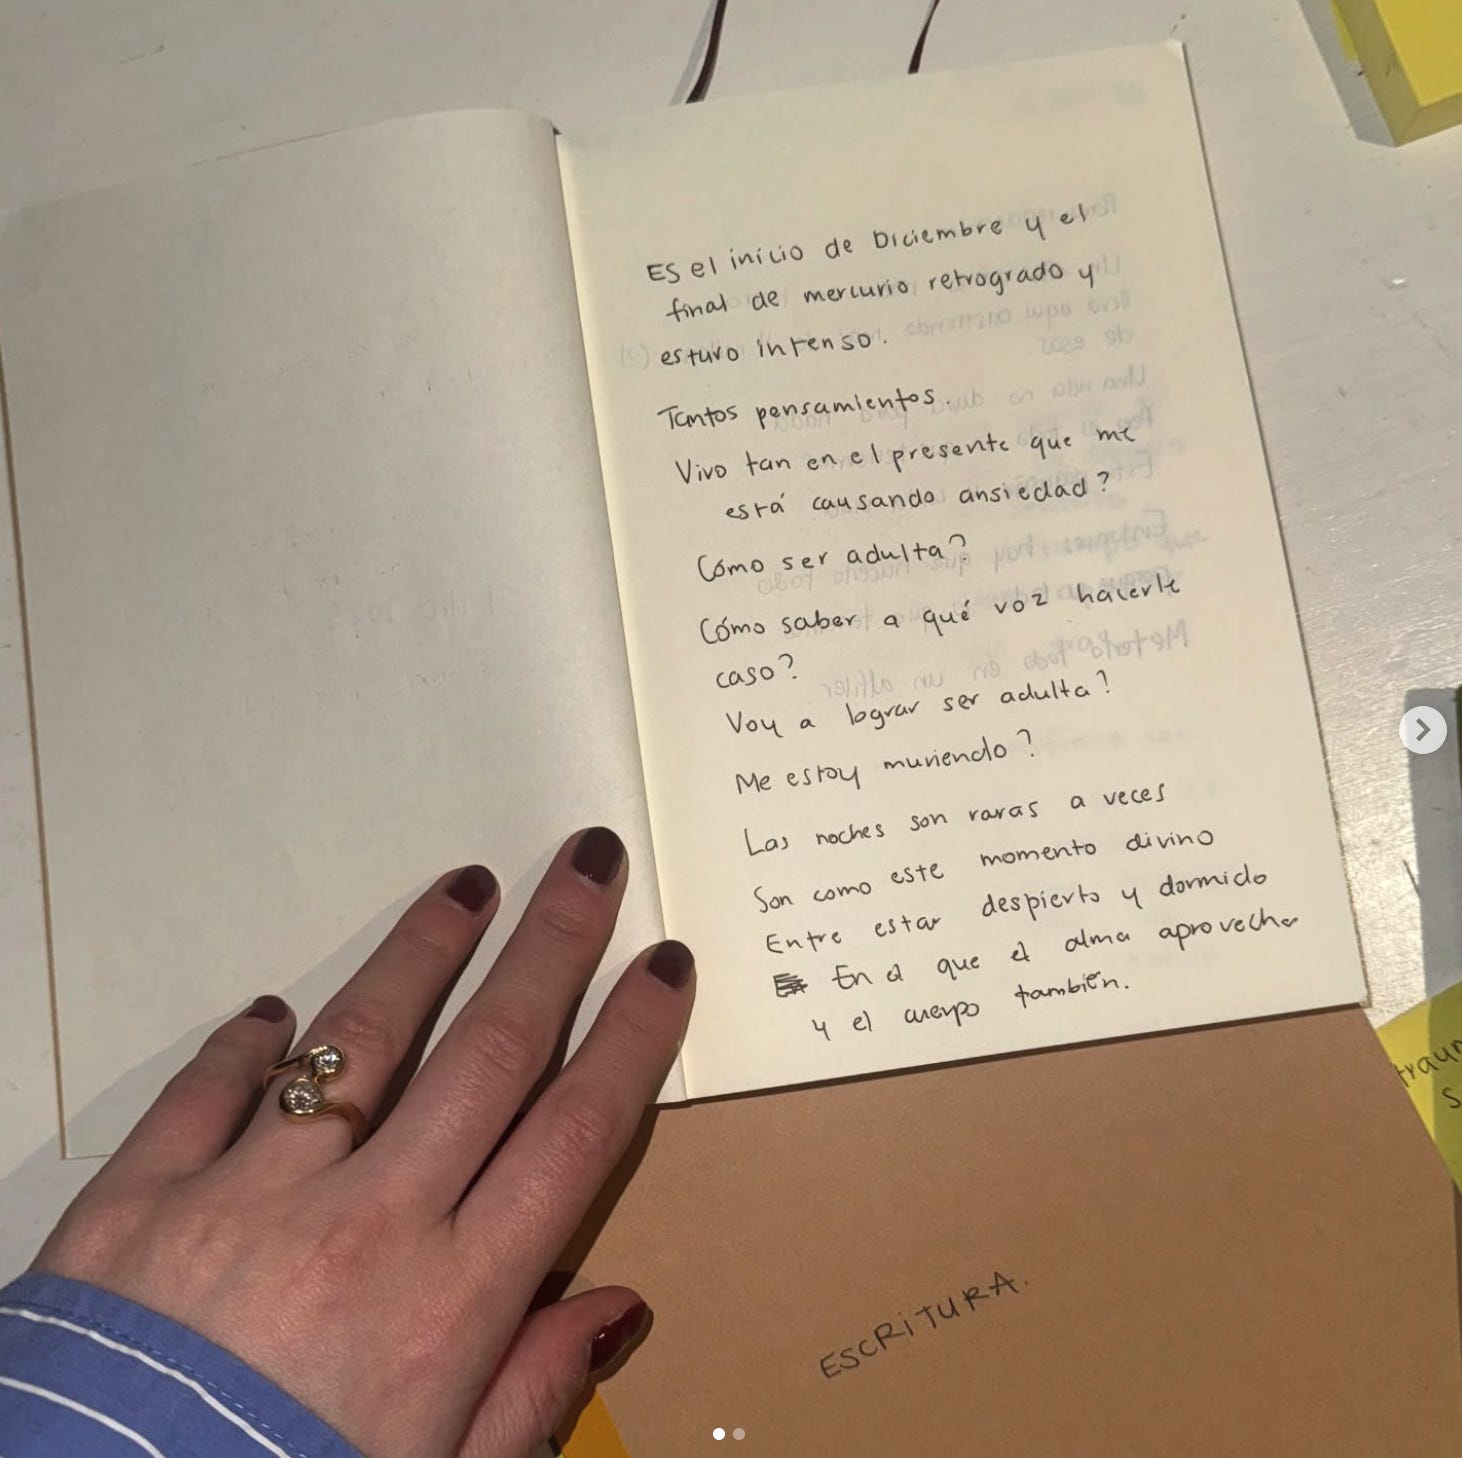 Es el inicio de Diciembre y el
final de mercurio retrogrado y
estuvo intenso.
Tantos pensamientos.
Vivo tan en el presente que me
está causando ansiedad?
Cómo ser adulta?
Cómo saber a qué voz hacerle
caso?
Voy a lograr ser adulta?
Me estoy muriendo?
Las noches son raras a veces
Son como este momento divino
Entre estar despierto y dormido
En el que el alma aprovecha
y el cuerpo también.
ESCRITURA.